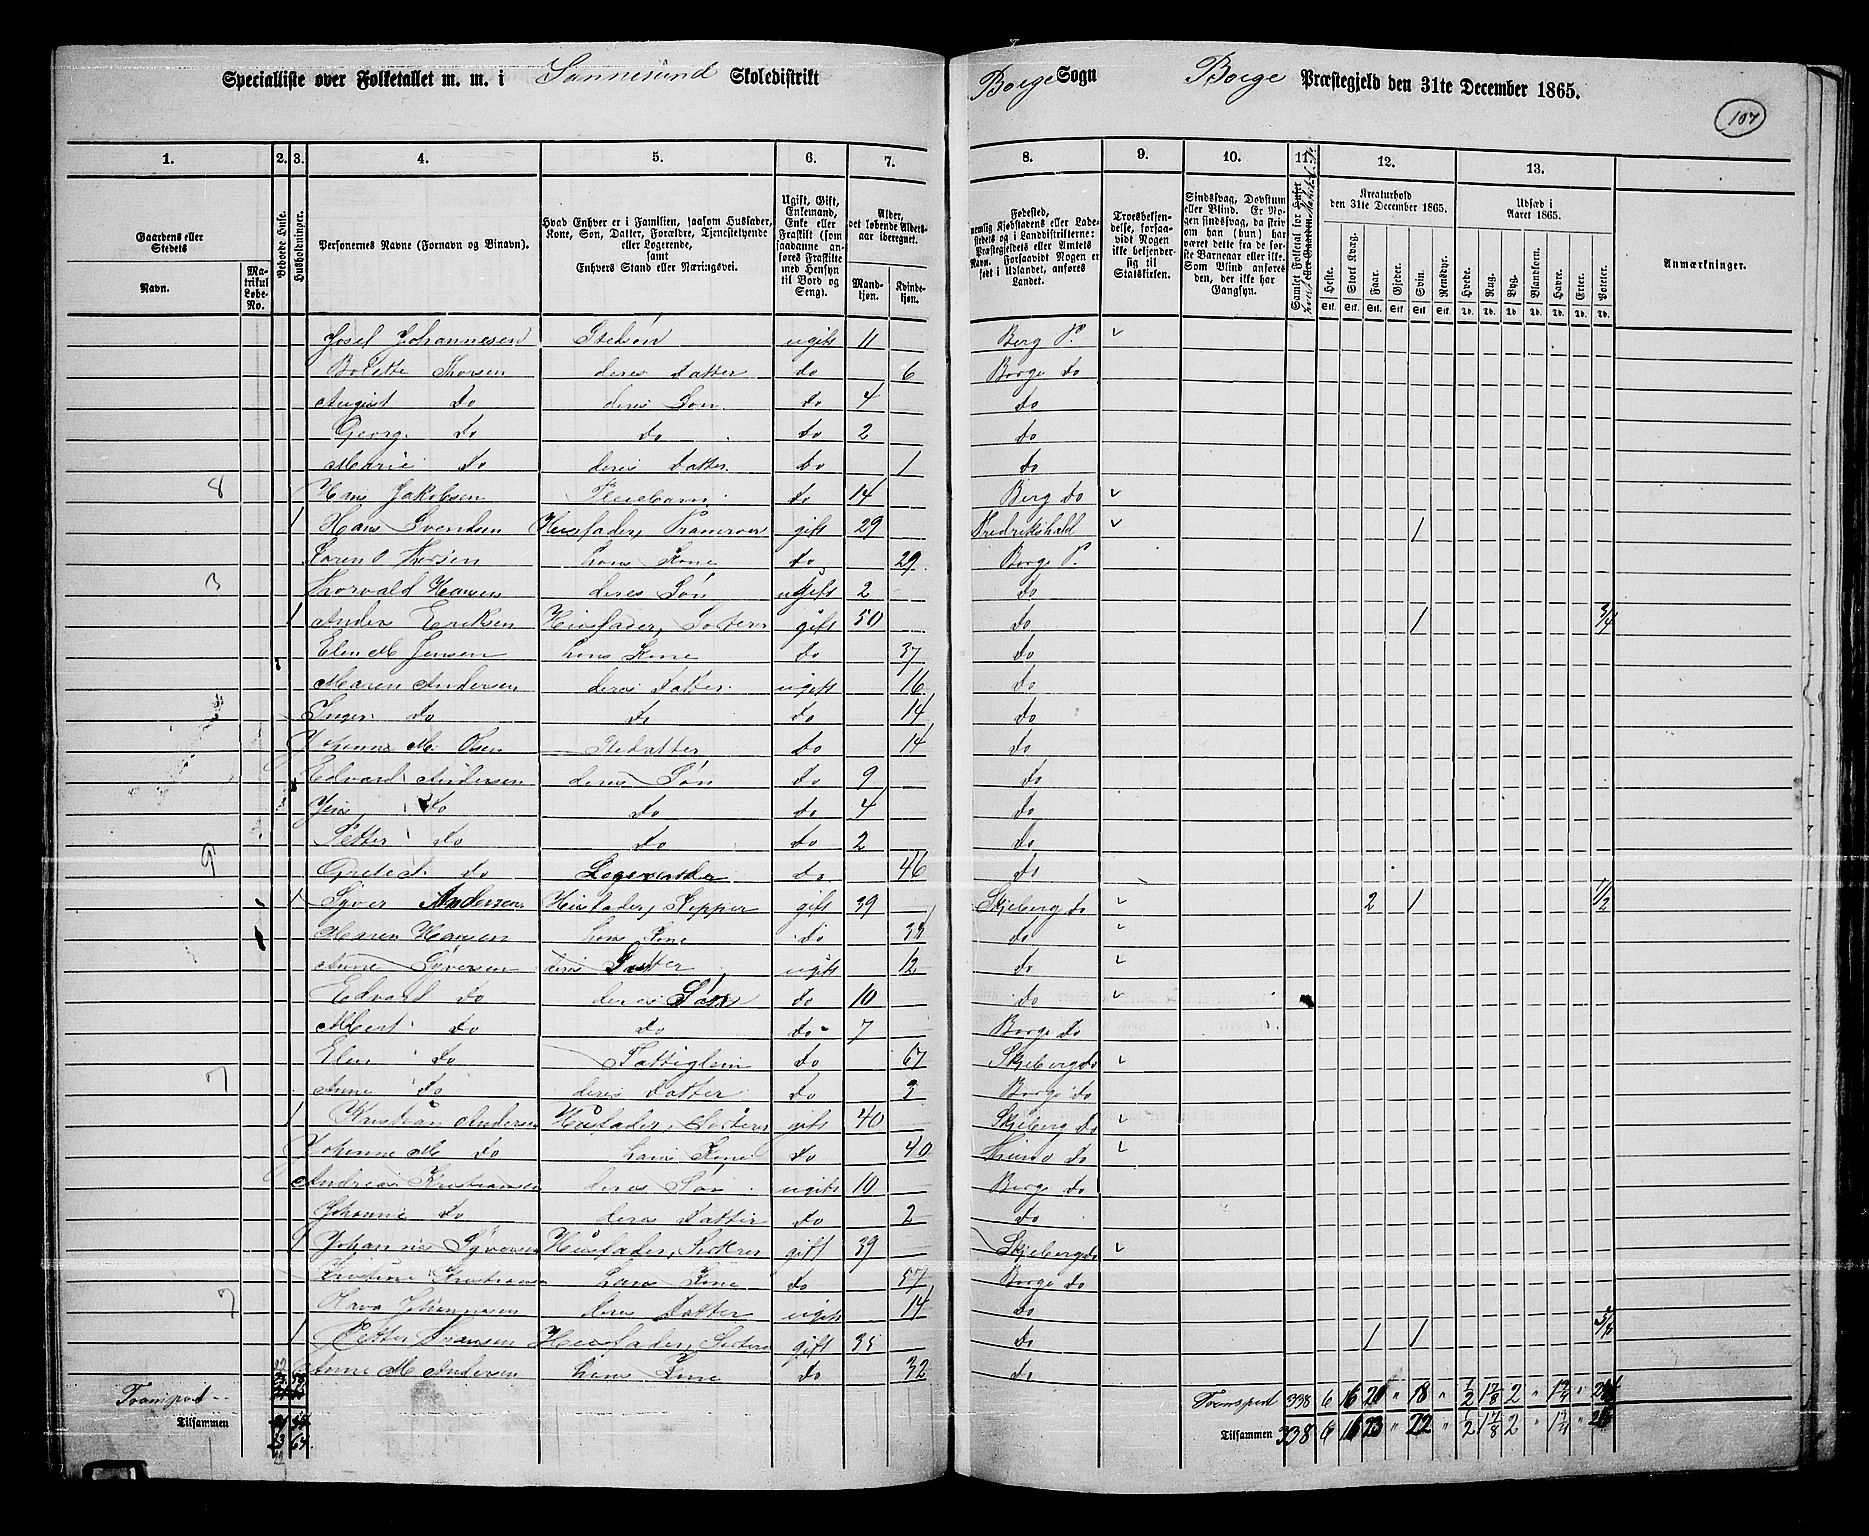 Specialliste over Folketallet m. m. i Sannesund Skoledistrikt
Borge Sogn Borge Præstegjeld den 31te December 1865.
107
1. 2. 3. 4. 5. 6. 7. 8. 9. 10. 11. 12. 13.
Gaardens eller Stedets
Navn.
Matrikul Løbe-No.
Beboede Huse.
Husholdninger.
Personernes Navne (Fornavn og Binavn).
Hvad Enhver er i Familien, saasom Husfader, Kone, Søn, Datter, Forældre, Tjenestetyende eller Logerende, samt Enhvers Stand eller Næringsvei.
Ugift, Gift, Enkemand, Enke eller Fraskilt (som saadanne anføres Fraskilte med Hensyn til Bord og Seng).
Alder, det løbende Aldersaar iberegnet.
Mandkjøn. Kvindekjøn.
Fødested, nemlig Kjøbstadens eller Ladestedets og i Landdistrikterne: Præstegjeldets eller Amtets Navn. Forsaavidt Nogen er født i Udlandet, anføres Landet.
Troesbekjendelse, forsaavidt Nogen ikke bekjender sig til Statskirken.
Sindssvag, Døvstum eller Blind. Er Nogen sindssvag, da skriv om han (hun) har været dette fra de første Barneaar eller ikke. Som Blind anføres den, der ikke har Gangsyn.
Kreaturhold den 31te December 1865.
Heste. Stort Kvæg. Faar. Gjeder. Svin. Rensdyr.
Udsæd i Aaret 1865.
Hvede. Rug. Byg. Blandkorn. Havre. Erter. Poteter.
Anmærkninger.
Josef Johannesen Stedsøn ugift 11 Berg P.
Bolette Thorsen deres Datter do 6 Borge do
August do deres Søn do 4 do
Georg do do do 2 do
Marie do deres Datter do 1 do
8 Hans Jakobsen Pleiebarn do 14 Berg do
1 Hans Svendsen Husfader, gift 29 Fredrikshald 1
hans Kone do 29 Borge P.
3 Thorvald Hansen deres Søn ugift 2 do
1 Anders Eriksen Husfader, gift 50 do 1 3/4
Elen M Jensen hans Kone do 37 do
Maren Andersen deres Datter ugift 16 do
Inger do do do 14 do
Johanne M. Olsen Stedatter do 14 do
Edvard Andersen deres Søn do 9 do
Jens do do do 4 do
Petter do do do 2 do
9 do Logerende do 46 do
1 Syver Andersen Husfader, gift 39 Skjeberg do 2 1 1/2
Maren Hansen hans Kone do 33 do
Anne Syversen deres Datter ugift 12 do
Edvard do deres Søn do 10 do
Albert do do do 7 Borge do
Elen do Fattiglem do 67 Skjeberg do
7 Anne do deres Datter do 3 Borge do
1 Kristian Andersen Husfader, gift 40 Skjeberg do
Johanne M do hans Kone do 40 do
Andreas Kristiansen deres Søn ugift 10 Borge do
Johanne do deres Datter do 2 do
1 Johannes Syversen Husfader, gift 39 Skjeberg do
Kristine Kristiansen hans Kone do 57 Borge do
7 Johannesen deres Datter ugift 14 do
1 Petter Husfader, gift 35 do 1 1
Anne M Andersen hans Kone do 32 do
Transport Transport 338 6 16 20 " 18 " 1/2 1 7/8 2 "
Tilsammen Tilsammen 338 6 16 23 " 22 " 1/2 1 7/8 2 "